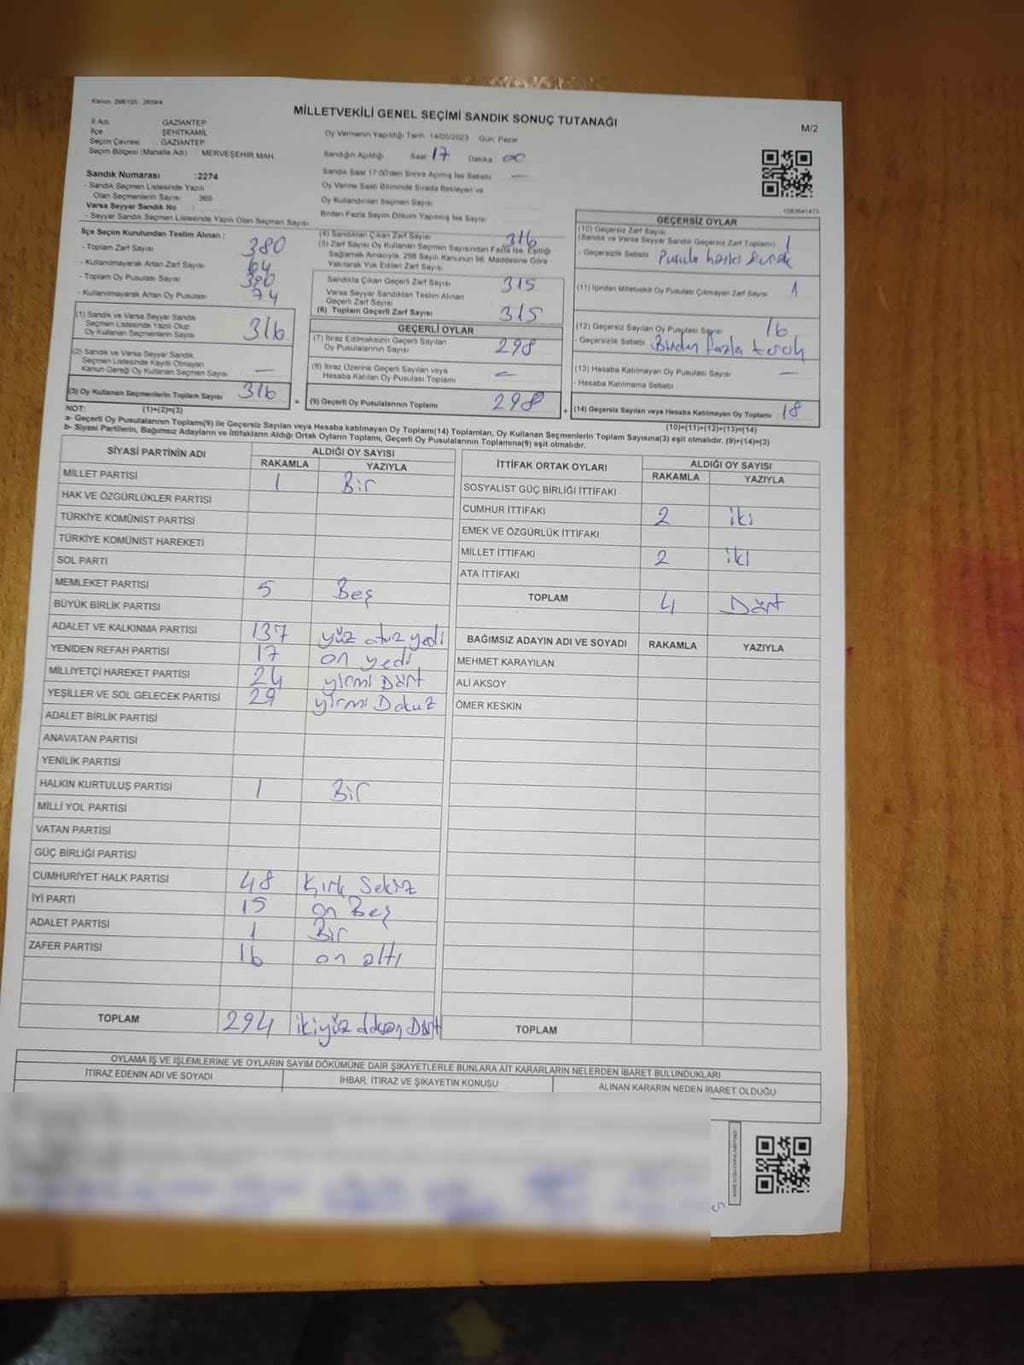 Kanun: 298/105 2839/4
MİLLETVEKİLİ GENEL SEÇİMİ SANDIK SONUÇ TUTANAĞI
M/2
İl Adı GAZİANTEP
İlçe ŞEHİTKAMİL
Seçim Çevresi GAZİANTEP
Seçim Bölgesi (Mahalle Adı) : MERVEŞEHİR MAH.
Oy Vermenin Yapıldığı Tarih: 14/05/2023 Gün: Pazar
Sandığın Açıldığı Saat 17 Dakika 00
Sandık Saat 17:00'den Sonra Açılmış İse Sebebi —
Oy Verme Saati Bitiminde Sırada Bekleyen ve
Oy Kullandırılan Seçmen Sayısı
Birden Fazla Sayım Döküm Yapılmış İse Sayısı
Sandık Numarası :2274
- Sandık Seçmen Listesinde Yazılı
Olan Seçmenlerin Sayısı 369
Varsa Seyyar Sandık No :
- Seyyar Sandık Seçmen Listesinde Yazılı Olan Seçmen Sayısı
İlçe Seçim Kurulundan Teslim Alınan :
- Toplam Zarf Sayısı 380
- Kullanılmayarak Artan Zarf Sayısı 64
- Toplam Oy Pusulası Sayısı
- Kullanılmayarak Artan Oy Pusulası 74
(1) Sandık ve Varsa Seyyar Sandık
Seçmen Listesinde Yazılı Olup
Oy Kullanan Seçmenlerin Sayısı 316
(2) Sandık ve Varsa Seyyar Sandık
Seçmen Listesinde Kayıtlı Olmayan
Kanun Gereği Oy Kullanan Seçmen Sayısı —
(3) Oy Kullanan Seçmenlerin Toplam Sayısı 316
(1)+(2)=(3)
(4) Sandıktan Çıkan Zarf Sayısı 316
(5) Zarf Sayısı Oy Kullanan Seçmen Sayısından Fazla İse, Eşitliği
Sağlamak Amacıyla, 298 Sayılı Kanunun 98. Maddesine Göre
Yakılarak Yok Edilen Zarf Sayısı
Sandıkta Çıkan Geçerli Zarf Sayısı 315
Varsa Seyyar Sandıktan Teslim Alınan
Geçerli Zarf Sayısı
(6) Toplam Geçerli Zarf Sayısı 315
GEÇERLİ OYLAR
(7) İtiraz Edilmeksizin Geçerli Sayılan
Oy Pusulalarının Sayısı 298
(8) İtiraz Üzerine Geçerli Sayılan veya
Hesaba Katılan Oy Pusulası Toplamı —
= (9) Geçerli Oy Pusulalarının Toplamı 298 +
GEÇERSİZ OYLAR
(10) Geçersiz Zarf Sayısı
(Sandık ve Varsa Seyyar Sandık Geçersiz Zarf Toplamı) 1
- Geçersizlik Sebebi Pusula harici
(11) İçinden Milletvekili Oy Pusulası Çıkmayan Zarf Sayısı 1
(12) Geçersiz Sayılan Oy Pusulası Sayısı 16
- Geçersizlik Sebebi Birden fazla tercih
(13) Hesaba Katılmayan Oy Pusulası Sayısı —
- Hesaba Katılmama Sebebi
(14) Geçersiz Sayılan veya Hesaba Katılmayan Oy Toplamı 18
(10)+(11)+(12)+(13)=(14)
NOT:
a- Geçerli Oy Pusulalarının Toplamı(9) ile Geçersiz Sayılan veya Hesaba katılmayan Oy Toplamı(14) Toplamları, Oy Kullanan Seçmenlerin Toplam Sayısına(3) eşit olmalıdır. (9)+(14)=(3)
b- Siyasi Partilerin, Bağımsız Adayların ve İttifakların Aldığı Ortak Oyların Toplamı, Geçerli Oy Pusulalarının Toplamına(9) eşit olmalıdır.
SİYASİ PARTİNİN ADI ALDIĞI OY SAYISI
RAKAMLA YAZIYLA
MİLLET PARTİSİ 1 Bir
HAK VE ÖZGÜRLÜKLER PARTİSİ
TÜRKİYE KOMÜNİST PARTİSİ
TÜRKİYE KOMÜNİST HAREKETİ
SOL PARTİ
MEMLEKET PARTİSİ 5 Beş
BÜYÜK BİRLİK PARTİSİ
ADALET VE KALKINMA PARTİSİ 137 yüz otuz yedi
YENİDEN REFAH PARTİSİ 17 on yedi
MİLLİYETÇİ HAREKET PARTİSİ 24 yirmi Dört
YEŞİLLER VE SOL GELECEK PARTİSİ 29 yirmi Dokuz
ADALET BİRLİK PARTİSİ
ANAVATAN PARTİSİ
YENİLİK PARTİSİ
HALKIN KURTULUŞ PARTİSİ 1 Bir
MİLLİ YOL PARTİSİ
VATAN PARTİSİ
GÜÇ BİRLİĞİ PARTİSİ
CUMHURİYET HALK PARTİSİ 48 Kırk Sekiz
İYİ PARTİ 15 on Beş
ADALET PARTİSİ 1 Bir
ZAFER PARTİSİ 16 on altı
TOPLAM 294 ikiyüz doksan Dört
İTTİFAK ORTAK OYLARI ALDIĞI OY SAYISI
RAKAMLA YAZIYLA
SOSYALİST GÜÇ BİRLİĞİ İTTİFAKI
CUMHUR İTTİFAKI 2 iki
EMEK VE ÖZGÜRLÜK İTTİFAKI
MİLLET İTTİFAKI 2 iki
ATA İTTİFAKI
TOPLAM 4 Dört
BAĞIMSIZ ADAYIN ADI VE SOYADI RAKAMLA YAZIYLA
MEHMET KARAYILAN
ALİ AKSOY
ÖMER KESKİN
TOPLAM
OYLAMA İŞ VE İŞLEMLERİNE VE OYLARIN SAYIM DÖKÜMÜNE DAİR ŞİKAYETLERLE BUNLARA AİT KARARLARIN NELERDEN İBARET BULUNDUKLARI
İTİRAZ EDENİN ADI VE SOYADI İHBAR, İTİRAZ VE ŞİKAYETİN KONUSU ALINAN KARARIN NEDEN İBARET OLDUĞU